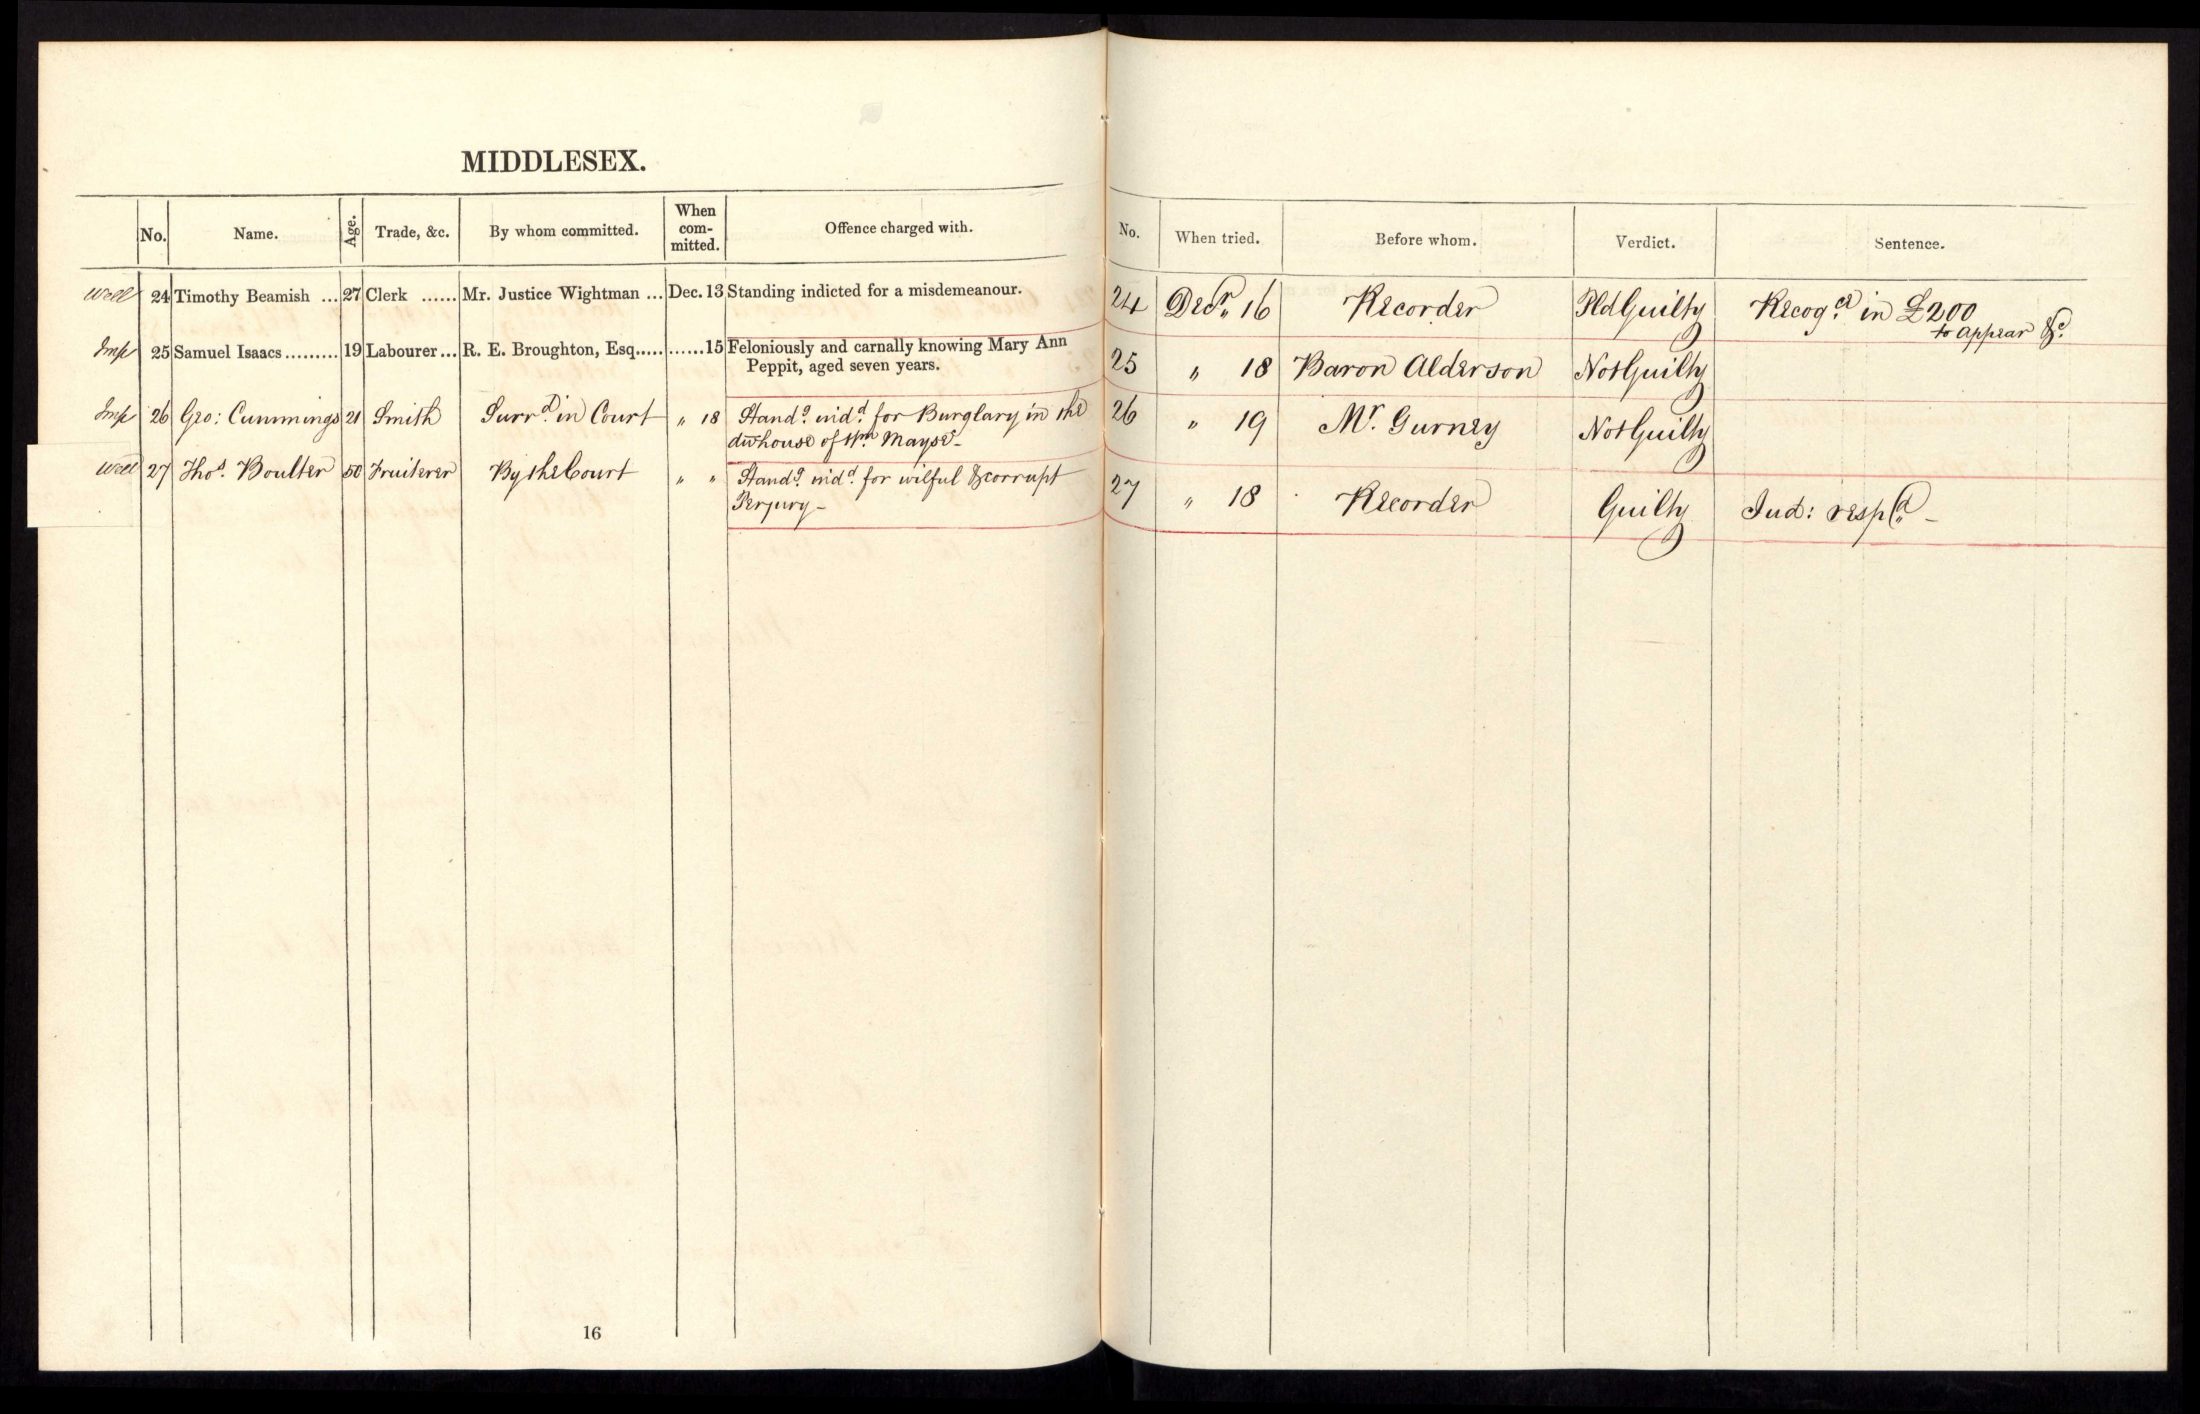 MIDDLESEX.
No. Name. Age. Trade, &c. By whom committed. When com-mitted. Offence charged with. No. When tried. Before whom. Verdict. Sentence.
Well 24 Timothy Beamish ... 27 Clerk ...... Mr. Justice Wightman ... Dec. 13 Standing indicted for a misdemeanour. 24 Decr. 16 Recorder Pld Guilty Recogce. in £200
to appear &c.
Imp 25 Samuel Isaacs ......... 19 Labourer ... R. E. Broughton, Esq..... ......15 Feloniously and carnally knowing Mary Ann 25 " 18 Baron Alderson Not Guilty
Peppit, aged seven years.
Imp 26 Geo: Cummings 21 Smith Surrd. in Court " 18 Standg. indd. for Burglary in the 26 " 19 Mr. Gurney Not Guilty
dwhouse of Wm Mayse -
Well 27 Thos. Boulter 50 Fruiterer By the Court " " Standg. indd. for wilful & corrupt 27 " 18 Recorder Guilty Jud: respd. -
Perjury -
16